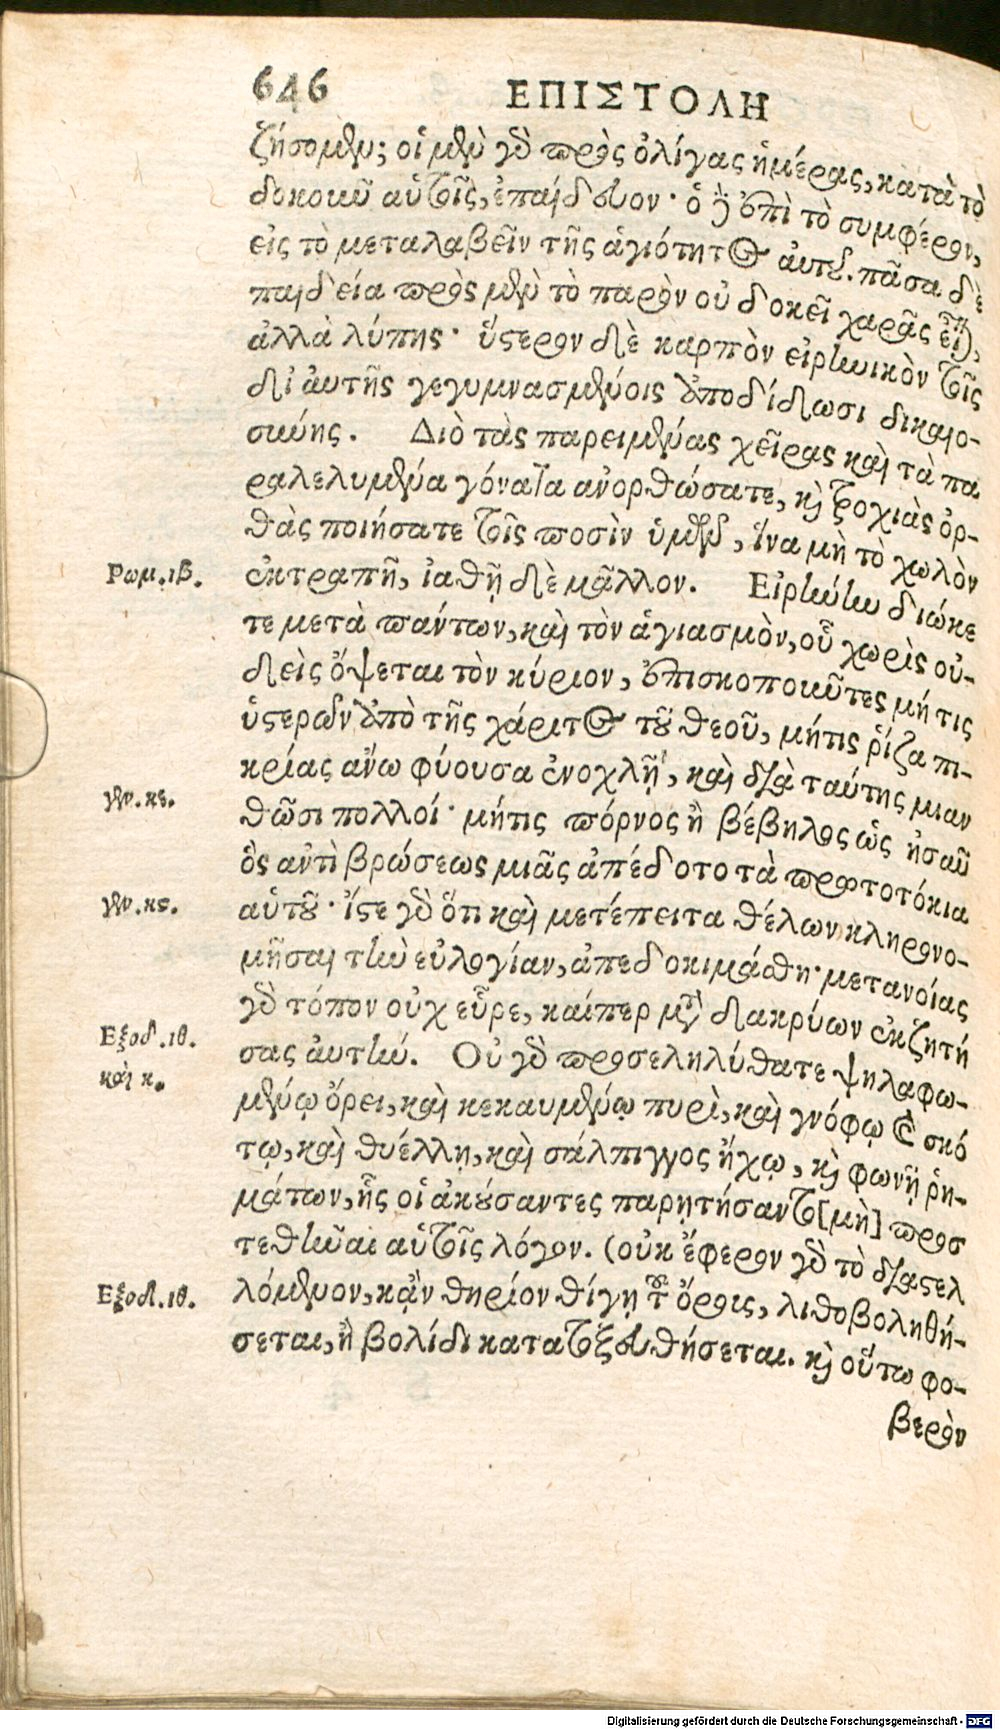 646 ΕΠΙΣΤΟΛΗ
ζήσομεν; οἱ μὲν γὸ πρὸς ὀλίγας ἡμέρας, κατὰ τὸ
δοκοιιῦ αὐτοῖς, ἐπαίδευον· ὁ δὲ ἐπὶ τὸ συμφέρον,
εἰς τὸ μεταλαβεῖν τῆς ἁγιότητος ἀυτοῦ. πᾶσα δὲ
παιδεία πρὸς μὲν τὸ παρὸν οὐ δοκεῖ χαρᾶς εἶναι,
ἀλλὰ λύπης· ὕστερον δὲ καρπὸν εἰρηνικὸν τοῖς
δι' ἀυτῆς γεγυμνασμένοις ἀποδίδωσι δικαιο-
σύνης. Διὸ τὰς παρειμένας χεῖρας καὶ τὰ πα
ραλελυμένα γόνατα ἀνορθώσατε, καὶ τροχιὰς ὀρ-
θὰς ποιήσατε τοῖς ποσὶν ὑμῶν, ἵνα μὴ τὸ χωλὸν
Ρωμ. ιβ. ἐκτραπῆ, ἰαθῇ δὲ μᾶλλον. Εἰρήνην διώκε
τε μετὰ πάντων, καὶ τὸν ἁγιασμὸν, οὗ χωρὶς οὐ-
δεὶς ὄψεται τὸν κύριον, ἐπισκοποῦντες μή τις
ὑστερῶν ἀπὸ τῆς χάριτος τοῦ θεοῦ, μήτις ῥίζα πι-
κρίας ἄνω φύουσα ἐνοχλῇ, καὶ διὰ ταύτης μιαν
γεν. κε. θῶσι πολλοί· μήτις πόρνος ἢ βέβηλος ὡς ἠσαῦ
ὃς ἀντὶ βρώσεως μιᾶς ἀπέδοτο τὰ πρωτοτόκια
γεν. κς. αὑτοῦ· ἴστε γὸ ὅτι καὶ μετέπειτα θέλων κληρονο-
μῆσαι τὴν εὐλογίαν, ἀπεδοκιμάσθη· μετανοίας
γὸ τόπον οὐχ εὗρε, καίπερ μετὰ δακρύων ἐκζητή
Εξοδ. ιθ. καὶ κ. σας ἀυτήν. Οὐ γὸ προσεληλύθατε ψηλαφω-
μένῳ ὄρει, καὶ κεκαυμένῳ πυρὶ, καὶ γνόφῳ καὶ σκό
τῳ, καὶ θυέλλῃ, καὶ σάλπιγγος ἤχῳ, καὶ φωνῇ ῥη-
μάτων, ἧς οἱ ἀκούσαντες παρῃτήσαντο [μὴ] προσ
τεθῆναι αὐτοῖς λόγον. (οὐκ ἔφερον γὸ τὸ διαστελ
Εξοδ. ιθ. λόμενον, κᾂν θηρίον θίγῃ τοῦ ὄρους, λιθοβοληθή-
σεται, ἢ βολίδι κατατοξευθήσεται. καὶ οὕτω φο-
βερὸν
Digitalisierung gefördert durch die Deutsche Forschungsgemeinschaft - DFG